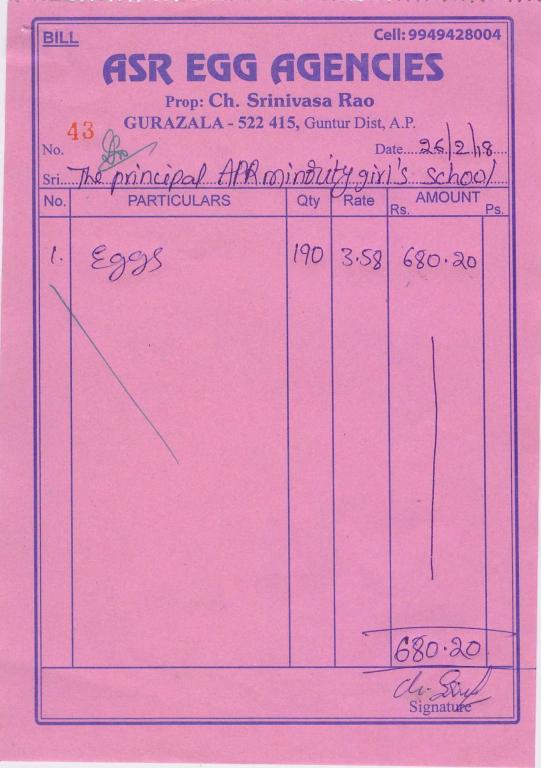 BILL
Cell: 9949428004
ASR EGG AGENCIES
Prop: Ch. Srinivasa Rao
GURAZALA - 522 415, Guntur Dist, A.P.
No. 43
Date 26/2/18
Sri. The principal APR minority girl's school
No. PARTICULARS Qty Rate AMOUNT
Rs. Ps.
1. Eggs 190 3.58 680.20
680.20
Signature